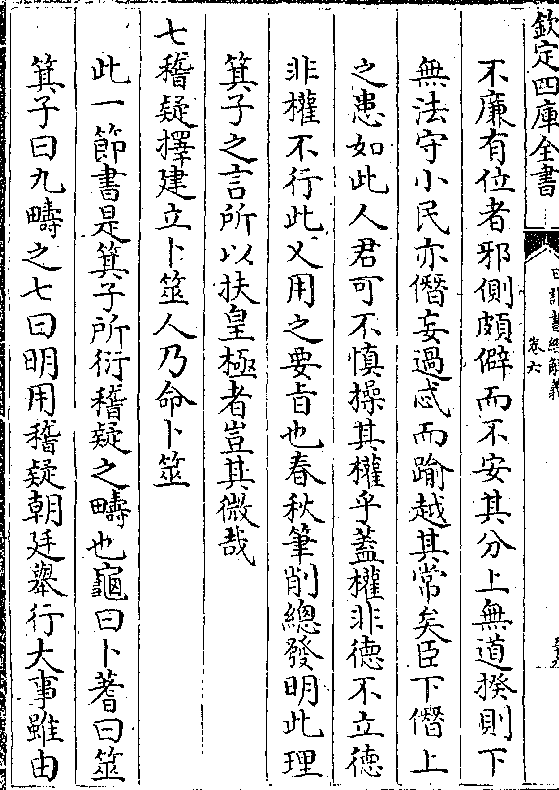 欽定四庫全書
日講書經解義
卷六
不廉有位者邪側頗僻而不安其分上無道揆則下
無法守小民亦僭妄過忒而踰越其常矣臣下僭上
之患如此人君可不慎操其權乎蓋權非德不立德
非權不行此乂用之要旨也春秋筆削總發明此理
箕子之言所以扶皇極者豈其微哉
七稽疑擇建立卜筮人乃命卜筮
此一節書是箕子所衍稽疑之疇也龜曰卜蓍曰筮
箕子曰九疇之七曰明用稽疑朝廷舉行大事雖由